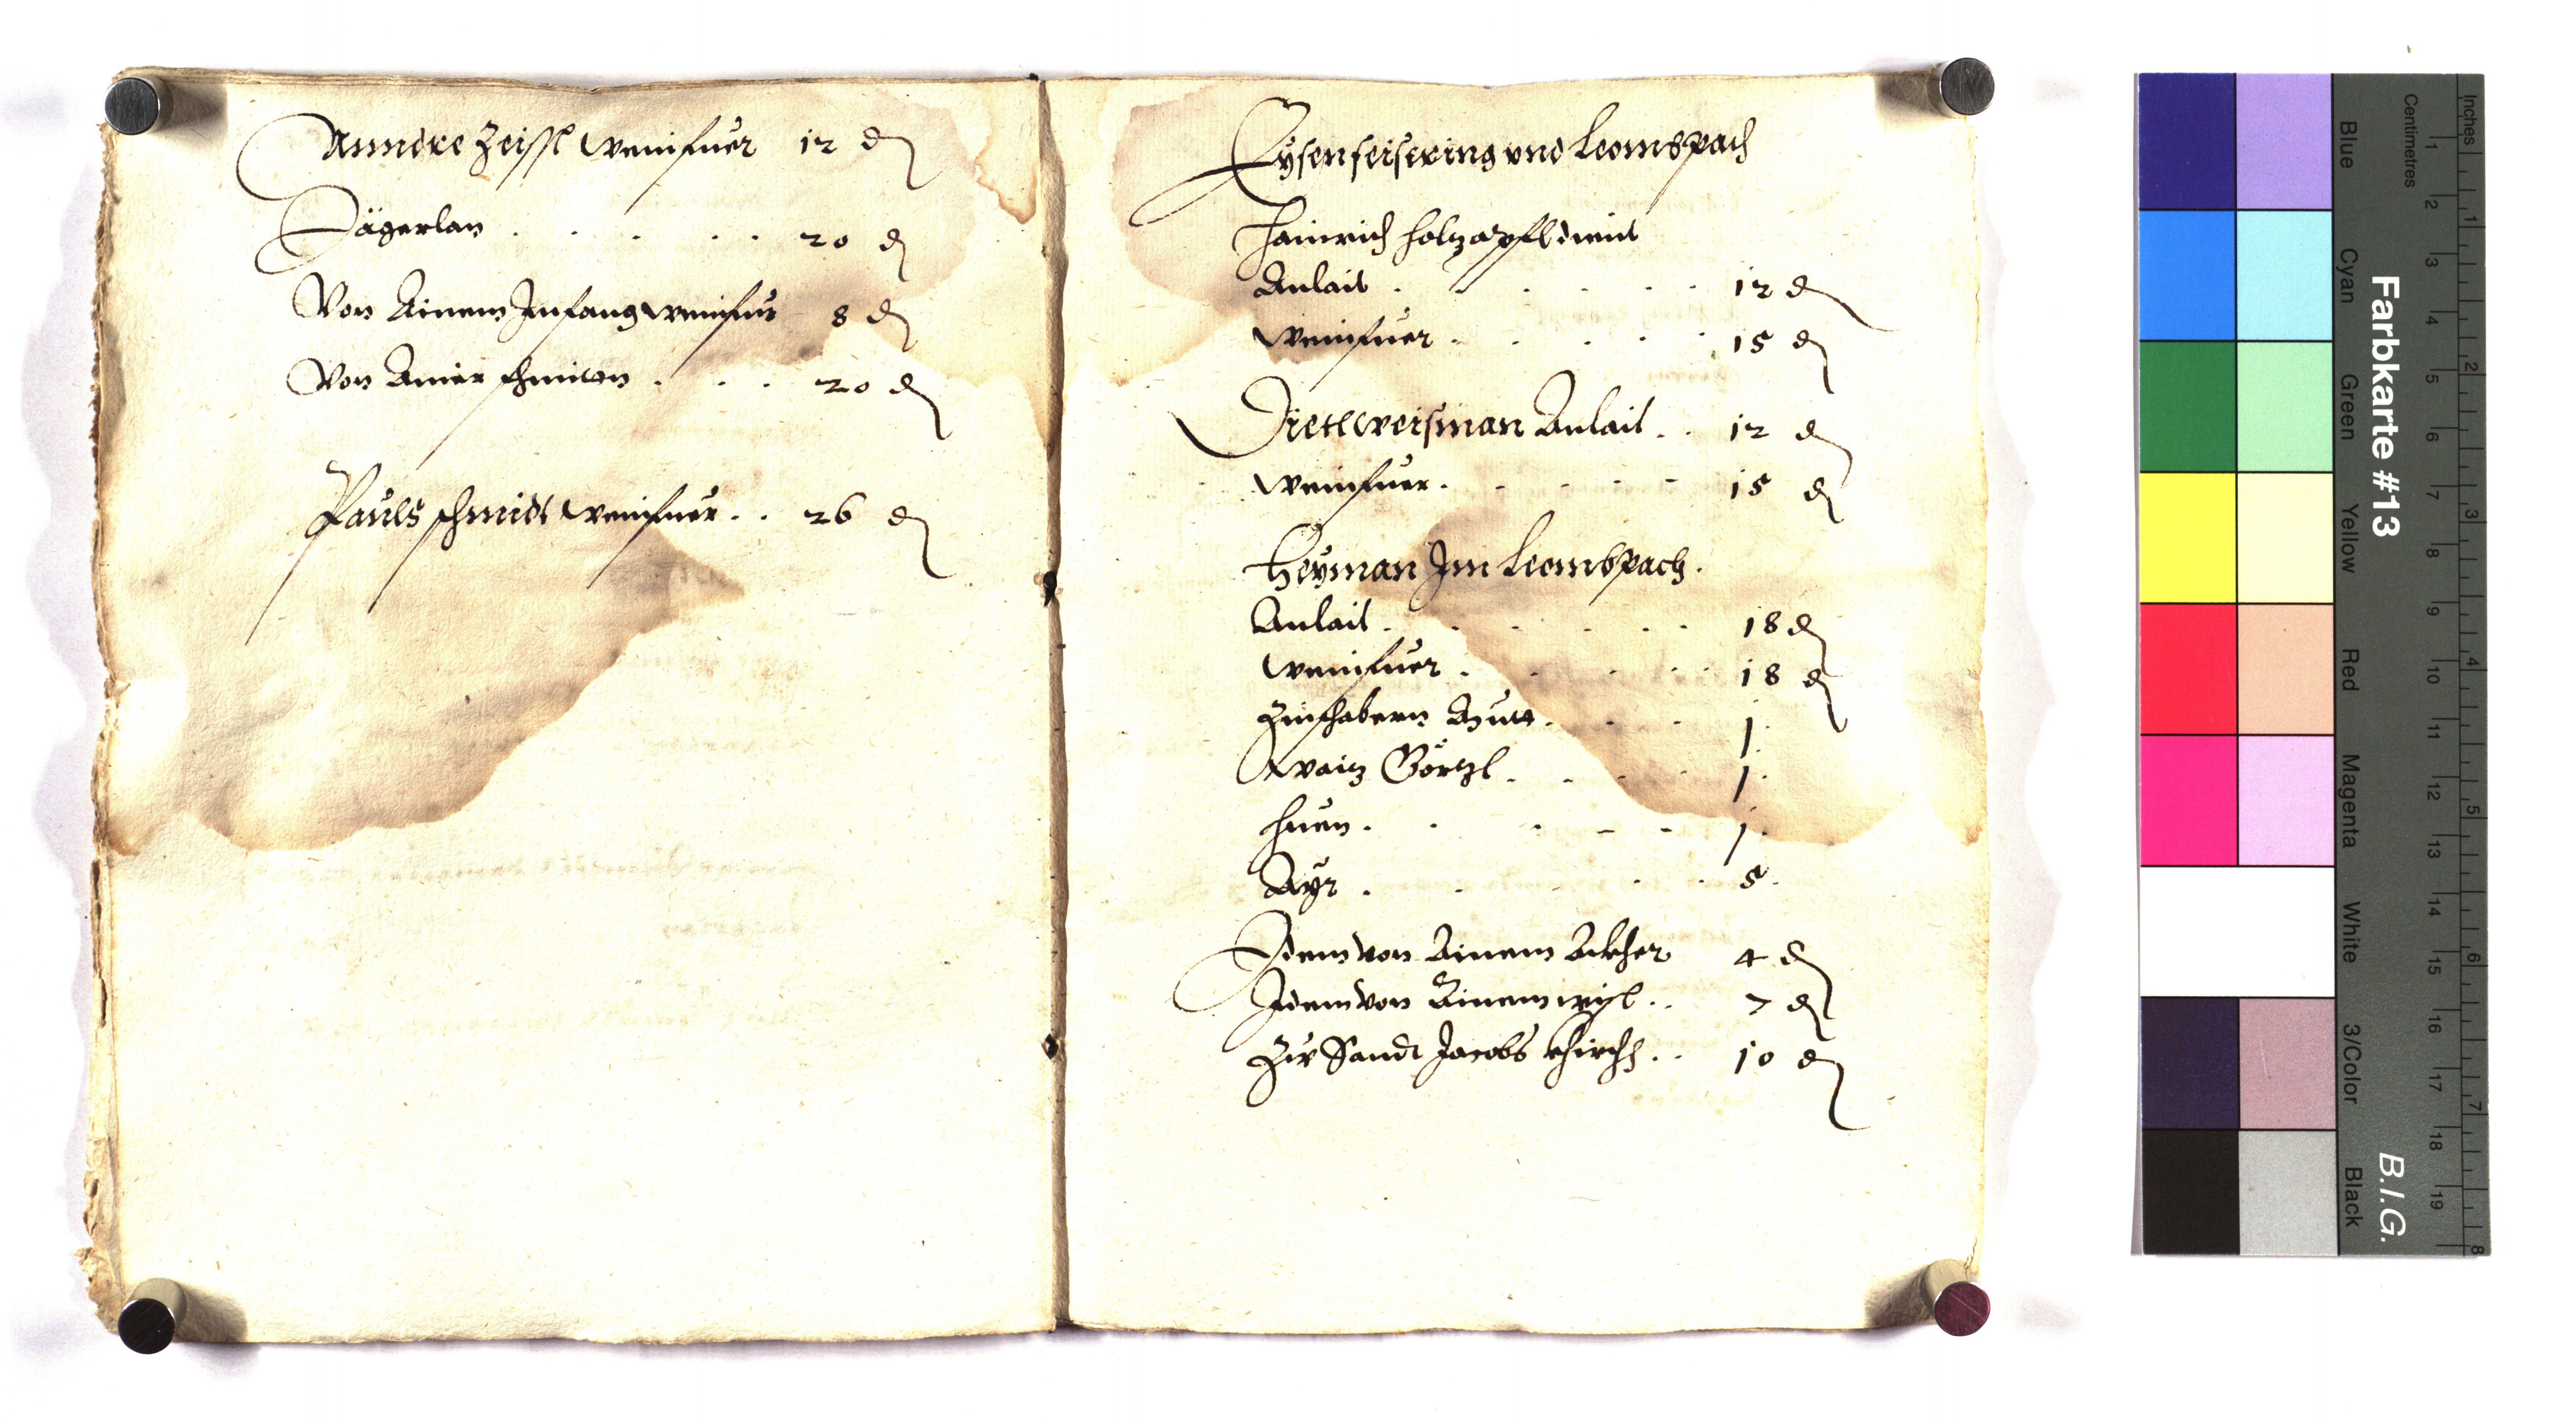 Anndre Zeissl Weinfuer 12 d
Jägerlan . . . . . . 20 d
Von Ainem Infang weinfur 8 d
Von Ainer schmitn . . . 20 d
Pauls schmidt weinfuer . . 26 d
Eysenfeisering vnd Leomspach
Hainrich holzapfl dient
Anlait . . . . . . 12 d
Weinfuer . . . . . 15 d
Dietl Weisman Anlait . . 12 d
Weinfuer . . . . . 15 d
Heyman Im Leomspach .
Anlait . . . . . . 18 d
weinfuer . . . . . 18 d
Zinshabern . . . . 1 .
Waiz Görzl . . . . 1 .
huen . . . . . 1 .
Ayr . . . . . 5 .
Idem von Ainem Ackher 4 d
Idem von Ainem wisl . . 7 d
Zu Sandt Jacobs khirch . . 10 d
Farbkarte #13
B.I.G.
Inches
Centimetres
Blue
Cyan
Green
Yellow
Red
Magenta
White
3/Color
Black
1 2 3 4 5 6 7 8 9 10 11 12 13 14 15 16 17 18 19
1 2 3 4 5 6 7 8